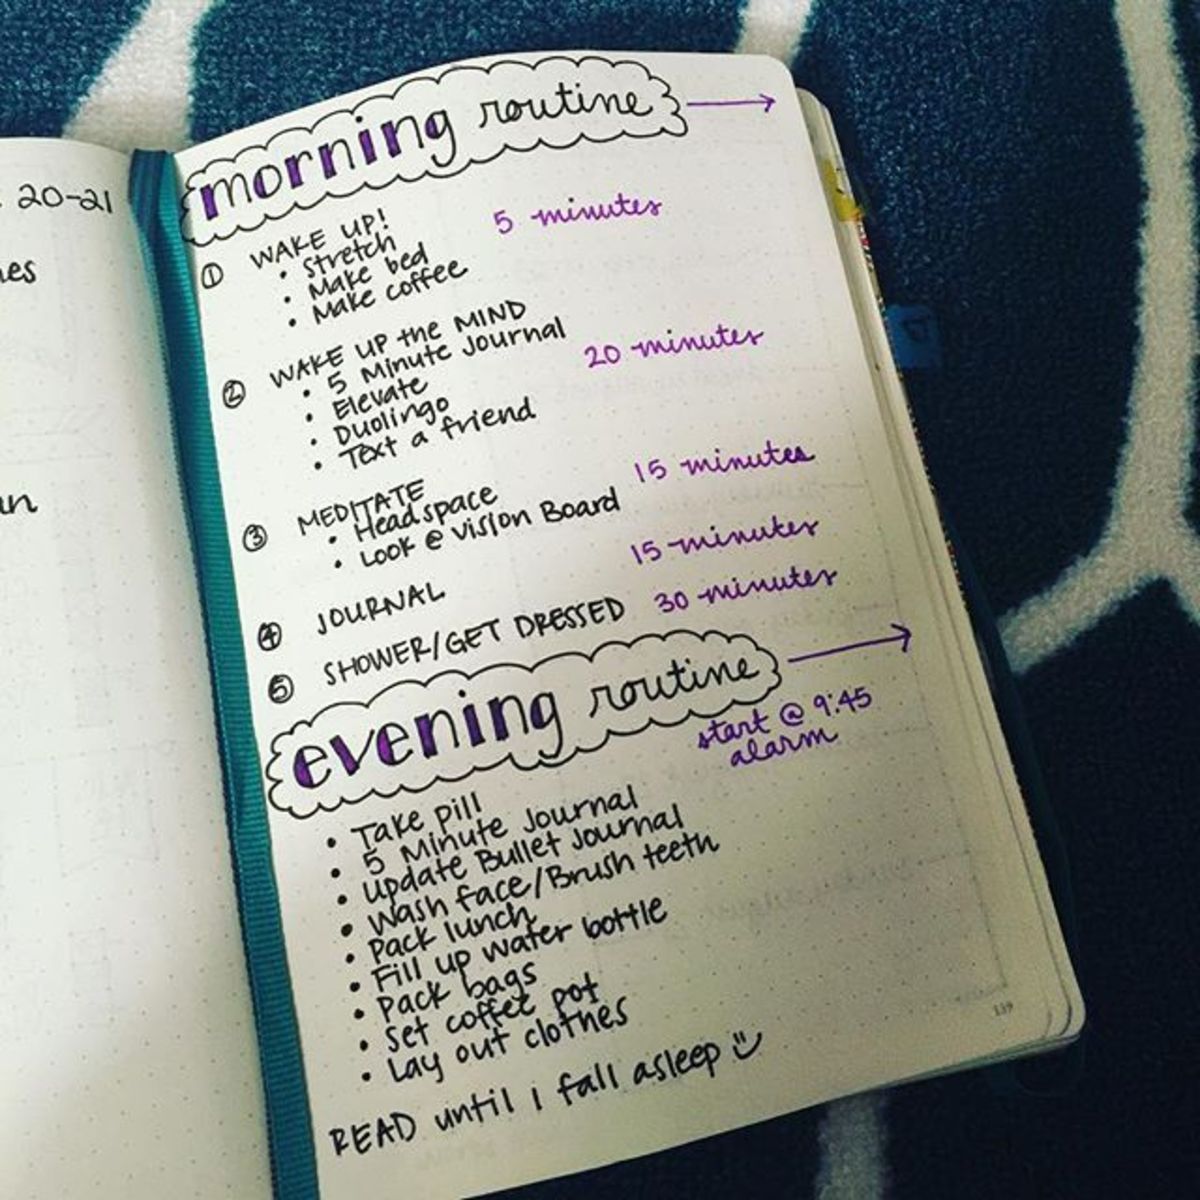 20-21
morning routine
① WAKE UP! 5 minutes
• Stretch
• Make bed
• Make coffee
② WAKE UP the MIND 20 minutes
• 5 Minute Journal
• Elevate
• Duolingo
• Text a friend
③ MEDITATE 15 minutes
• Headspace
• Look @ Vision Board
④ JOURNAL 15 minutes
⑤ SHOWER/GET DRESSED 30 minutes
evening routine
start @ 9:45
alarm
• Take pill
• 5 Minute Journal
• Update Bullet Journal
• Wash face/Brush teeth
• Pack lunch
• Fill up water bottle
• Pack bags
• Set coffee pot
• Lay out clothes
READ until i fall asleep
139